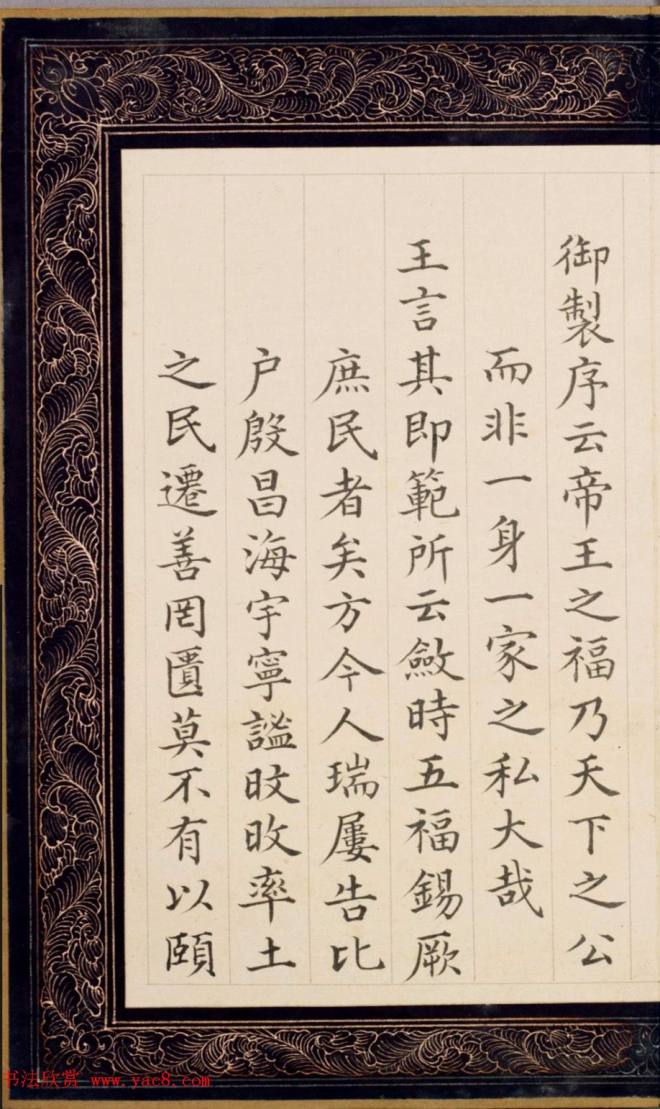 御製序云帝王之福乃天下之公
而非一身一家之私大哉
王言其即範所云斂時五福錫厥
庶民者矣方今人瑞屢告比
户殷昌海宇寧謐旼旼率土
之民遷善罔匱莫不有以頤
书法欣赏 www.yac8.com